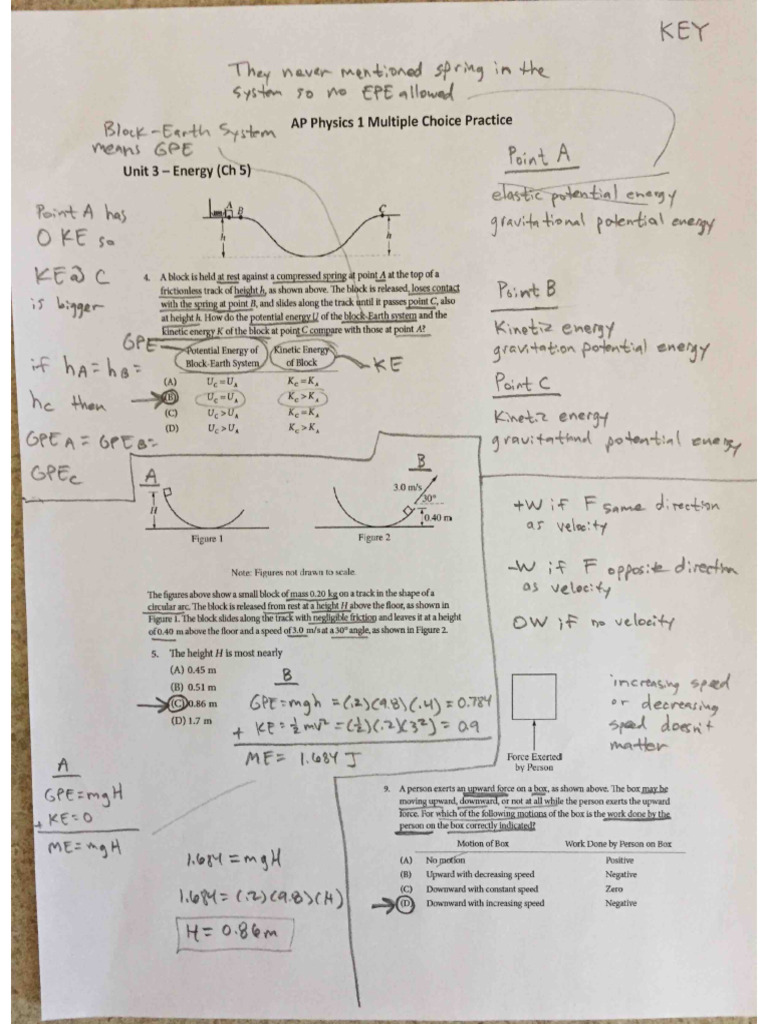 KEY
They never mentioned spring in the
system so no EPE allowed
AP Physics 1 Multiple Choice Practice
Block-Earth System
means GPE
Unit 3 – Energy (Ch 5)
Point A
elastic potential energy
gravitational potential energy
Point A has
0 KE so
KE @ C
is bigger
if hA = hB =
hc then
GPEA = GPEB =
GPEC
A
B
C
h
h
4. A block is held at rest against a compressed spring at point A at the top of a
frictionless track of height h, as shown above. The block is released, loses contact
with the spring at point B, and slides along the track until it passes point C, also
at height h. How do the potential energy U of the block-Earth system and the
kinetic energy K of the block at point C compare with those at point A?
Point B
Kinetic energy
gravitation potential energy
Point C
Kinetic energy
gravitational potential energy
GPE
Potential Energy of Kinetic Energy
Block-Earth System of Block
KE
(A) UC = UA KC = KA
(B) UC = UA KC > KA
(C) UC > UA KC = KA
(D) UC > UA KC > KA
A
H
Figure 1
B
3.0 m/s
30°
0.40 m
Figure 2
Note: Figures not drawn to scale.
The figures above show a small block of mass 0.20 kg on a track in the shape of a
circular arc. The block is released from rest at a height H above the floor, as shown in
Figure 1. The block slides along the track with negligible friction and leaves it at a height
of 0.40 m above the floor and a speed of 3.0 m/s at a 30° angle, as shown in Figure 2.
5. The height H is most nearly
(A) 0.45 m
(B) 0.51 m
(C) 0.86 m
(D) 1.7 m
B
GPE = mgh = (.2)(9.8)(.4) = 0.784
+ KE = ½ mv² = (½)(.2)(3²) = 0.9
ME = 1.684 J
A
GPE = mgH
+ KE = 0
ME = mgH
1.684 = mgH
1.684 = (.2)(9.8)(H)
H = 0.86 m
+W if F same direction
as velocity
-W if F opposite direction
as velocity
0W if no velocity
increasing speed
or decreasing
speed doesn't
matter
Force Exerted
by Person
9. A person exerts an upward force on a box, as shown above. The box may be
moving upward, downward, or not at all while the person exerts the upward
force. For which of the following motions of the box is the work done by the
person on the box correctly indicated?
Motion of Box Work Done by Person on Box
(A) No motion Positive
(B) Upward with decreasing speed Negative
(C) Downward with constant speed Zero
(D) Downward with increasing speed Negative